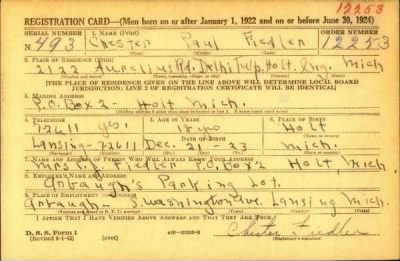 12253
REGISTRATION CARD—(Men born on or after January 1, 1922 and on or before June 30, 1924)
SERIAL NUMBER 1. NAME (Print) ORDER NUMBER
N 493 Chester Paul Fiedler 12253
2. PLACE OF RESIDENCE (Print)
2122 Rd. Delhi Twp. Holt, Ing. Mich
[THE PLACE OF RESIDENCE GIVEN ON THE LINE ABOVE WILL DETERMINE LOCAL BOARD
JURISDICTION; LINE 2 OF REGISTRATION CERTIFICATE WILL BE IDENTICAL]
3. MAILING ADDRESS
P.O. Box 2 - Holt Mich.
4. TELEPHONE 5. AGE IN YEARS 6. PLACE OF BIRTH
72611 yes. 18 Holt
DATE OF BIRTH
Lansing-72611 Dec. 21 - 23 Mich.
7. NAME AND ADDRESS OF PERSON WHO WILL ALWAYS KNOW YOUR ADDRESS
Mrs. Fiedler P.O. Box 2 Holt Mich
8. EMPLOYER'S NAME AND ADDRESS
Arbaugh's Parking Lot.
9. PLACE OF EMPLOYMENT OR BUSINESS
Arbaugh - S. Washington Ave. Lansing Mich.
I AFFIRM THAT I HAVE VERIFIED ABOVE ANSWERS AND THAT THEY ARE TRUE.
D. S. S. Form 1
(Revised 6-1-42) (over)
Chester Fiedler
(Registrant's signature)